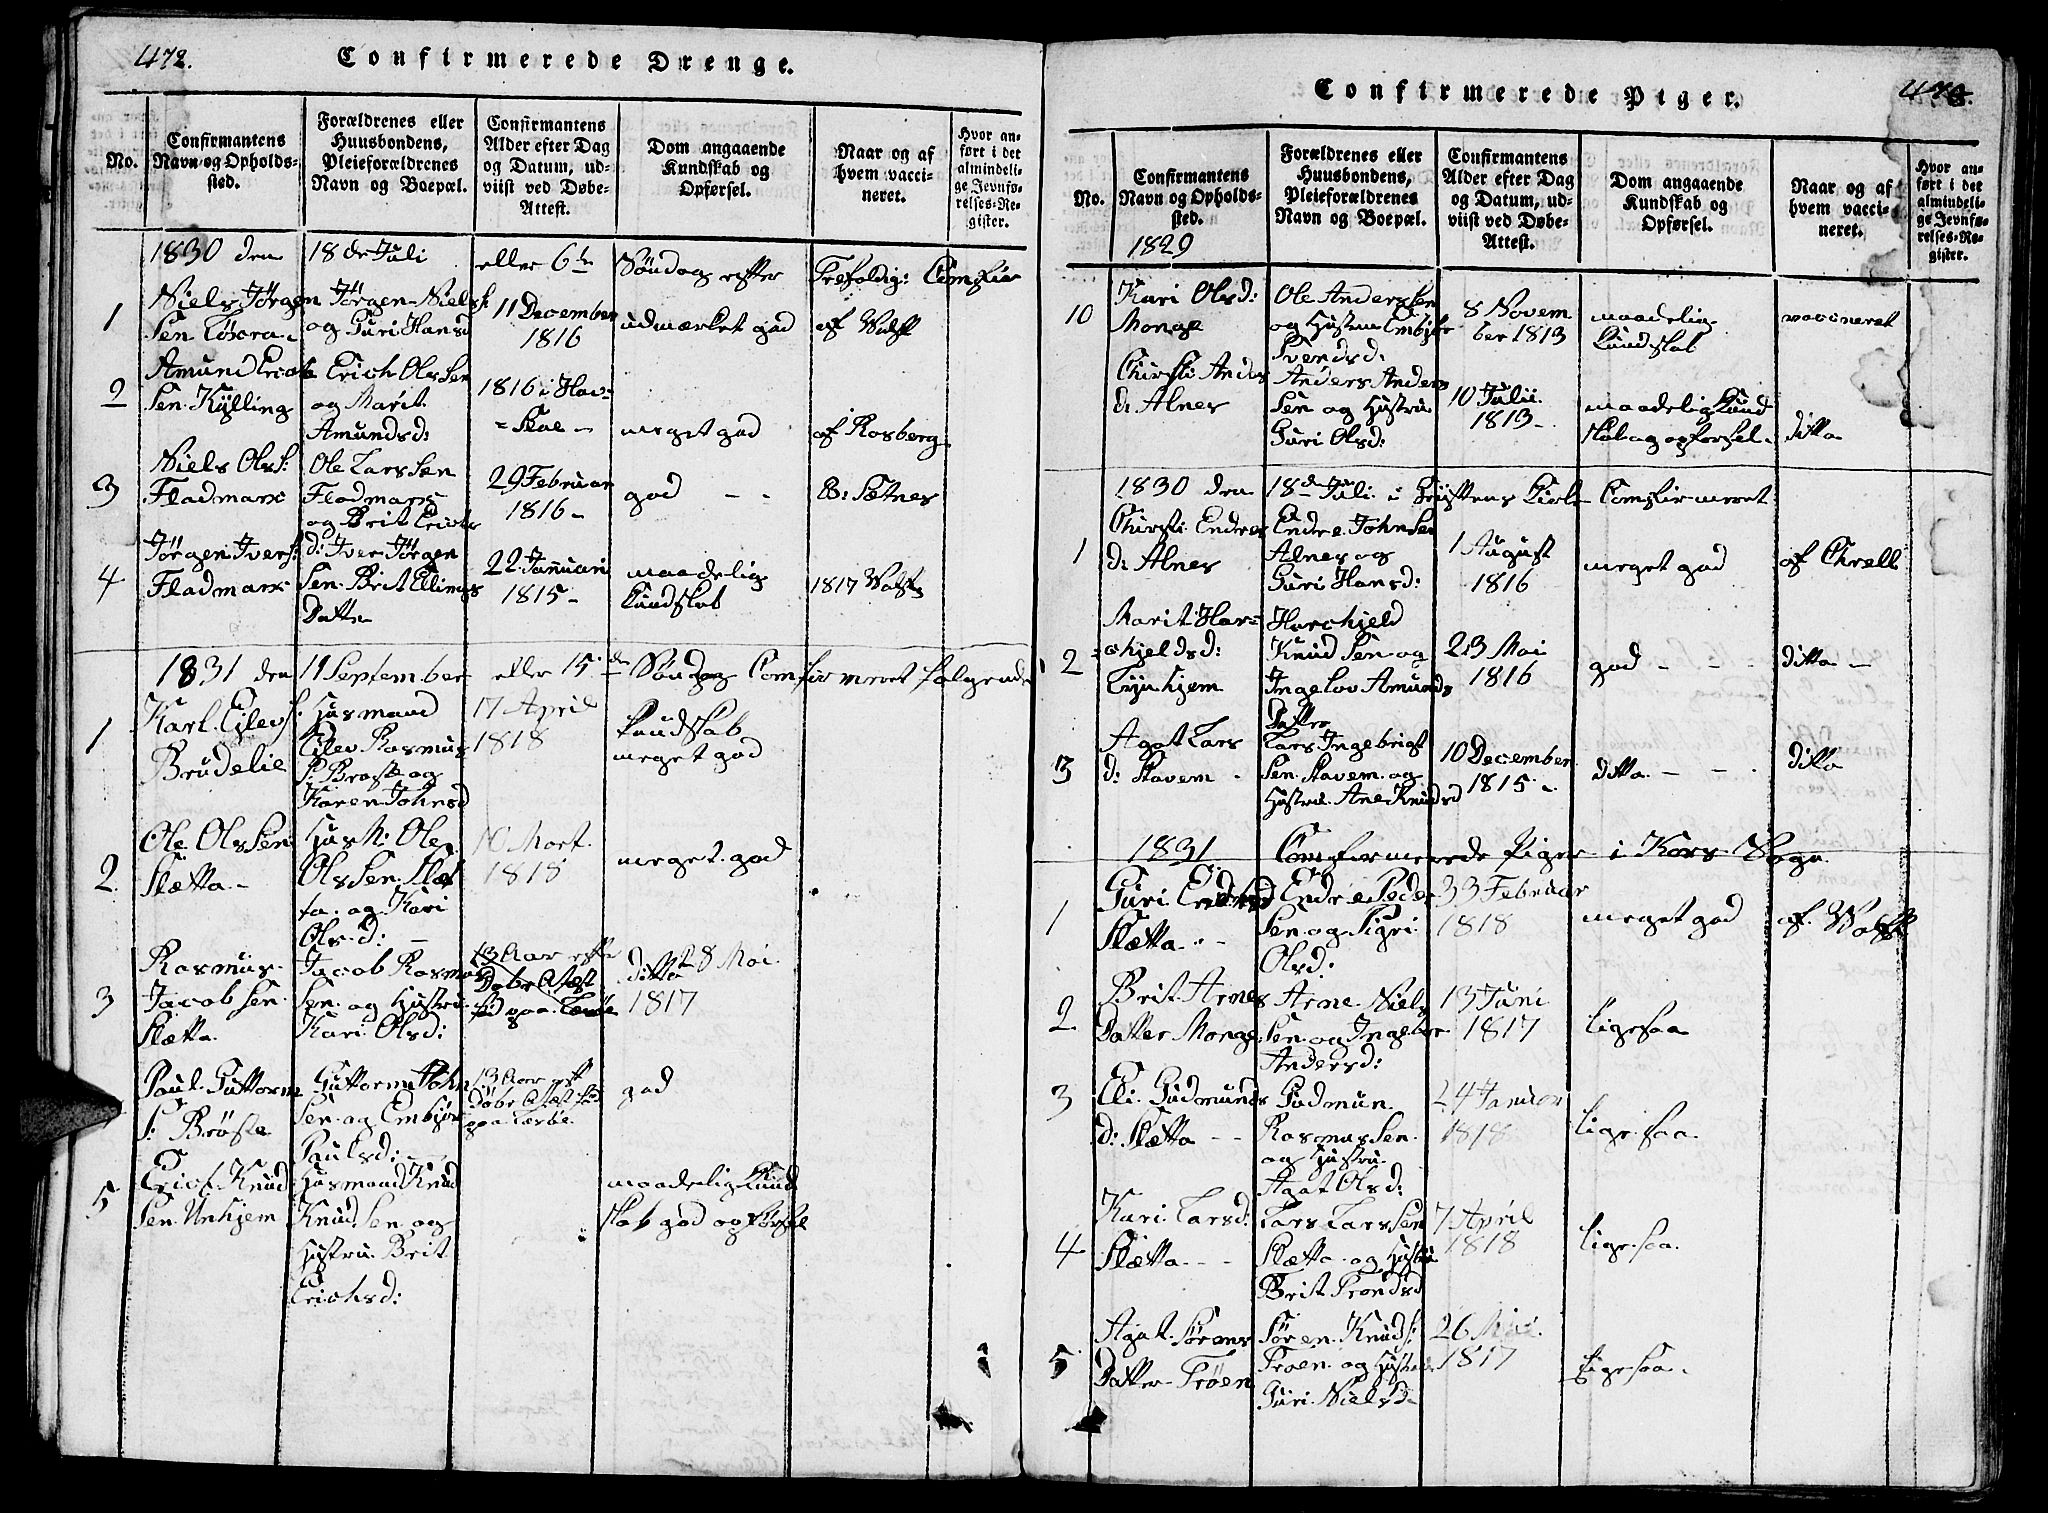 472.
Confirmerede Drenge.
No.
Confirmantens
Navn og Opholds-
sted.
Forældrenes eller
Huusbondens,
Pleieforældrenes
Navn og Boepæl.
Confirmantens
Alder efter Dag
og Datum, ud-
viist ved Døbe-
Attest.
Dom angaaende
Kundskab og
Opførsel.
Naar og af
hvem vacci-
neret.
Hvor an-
ført i det
almindeli-
ge Jevnfø-
relses-Re-
gister.
1830 den 18de Juli eller 6te Søndag efter Trefoldig: Comfir
1
Niels Jørgen
Sen
Jørgen Niels:
og Guri Hansd
11 December
1816
udmærket god
af Walst
2
Amund Erich
Sen Kylling
Erich Olssen
og Marit
Amundsd:
1816 i Hav=
=Skoe -
meget god
af Rosberg
3
Niels Ols:
Fladmark
Ole Larssen
Fladmark
og Brit Erichs
29 Februar
1816 -
god - -
B: Sætnes
4
Jørgen Ivers:
Fladmark
d: Iver Jørgen
Sen Brit Ellings
Datter
22 Januari
1815 -
maadelig
Kundskab
1817 Walst
1831 den 11 September eller 15 den Søndag Comfirmeret følgende
1
Karl Eilevs:
Brudelie
Husmand
Eilev Rasmus
S: Brøste og
Karen Johnsd
17 April
1818
Kundskab
meget god
2.
Ole Olssen
Slætta -
Hus M: Ole
Olssen Slæt
ta. og Kari
Olsd: -
10 Mart.
1818
meget god
3
Rasmus
Jacobsen
Slætta
Jacob Rasmus
Sen og Hustru
Kari Olsd:
13 Aar efter
Døbe Attest
fød paa
ditto 8 Mai
1817
Paul Guttorm
S: Brøste
Guttorm John
Sen og Embjør
Paulsd: -
13 Aar eft
Døbe Attest fød
paa
god
5
Erich Knud
Sen Unhjem
Husmand Knud
Knudsen og
Hustru Brit
Erichsd:
maadelig Kund
skab god opførsel
Confirmerede Piger.
473.
No.
Confirmantens
Navn og Opholds-
sted.
Forældrenes eller
Huusbondens,
Pleieforældrenes
Navn og Boepæl.
Confirmantens
Alder efter Dag
og Datum, ud-
viist ved Døbe-
Attest.
Dom angaaende
Kundskab og
Opførsel.
Naar og af
hvem vacci-
neret.
Hvor an-
ført i det
almindeli-
ge Jevnfø-
relses-Re-
gister.
1829
10
Kari Olsd:
Monge
Ole Anderssen
og Hustru Embjør
Svendsd:
8 Novem
ber 1813
maadelig
Kundskab
vaccineret
Chirsti Anders
d: Alnes
Anders Anders
Sen og Hustru
Guri Olsd:
10 Julii
1813 -
maadelig Kund
skab og opførsel -
ditto
1830 den 18de Juli i Kirke Comfirmeret
1
Chirsti Endres
d: Alnes
Endre Johnsen
Alnes og
Guri Hansd:
1 August
1816
meget god
af Chrell
2
Marit Har=
=chjeldsd:
Harchjeld
Knudsen og
Ingelov Amunds
Datter
23 Mai
1816
god - - -
ditto -
3
Agat Lars
d: Stavem -
Lars Ingebrigt
Sen Stavem og
Hustru Ane Knudsd
10 December
1815 -
ditto - - -
ditto
1831 Comfirmerede Piger i Kors Sogn
1
Guri Endresd
Slætta -
Endre Peder
Sen og Sigri
Olsd:
Februar
1818
meget god
af Walst
2
Brit Arnes
Datter Monge
Arne Niels
Sen og Ingebor
Andersd:
13 Juni
1817
ligesaa
3
Eli Gudmunds
d: Slætta - -
Gudmun
Rasmussen
og Hustru
Agat Olsd:
24 Januar
1818
ligesaa
4
Kari Larsd:
Slætta - -
Lars Larssen
Slætta og Hustru
Brit Trondsd
7 April
1818
ligesaa
5
Agat Sørens
Datter Trøen
Søren Knuds:
Troen og Hustru
Guri Nielsd
26 Mai
1817
ligesaa